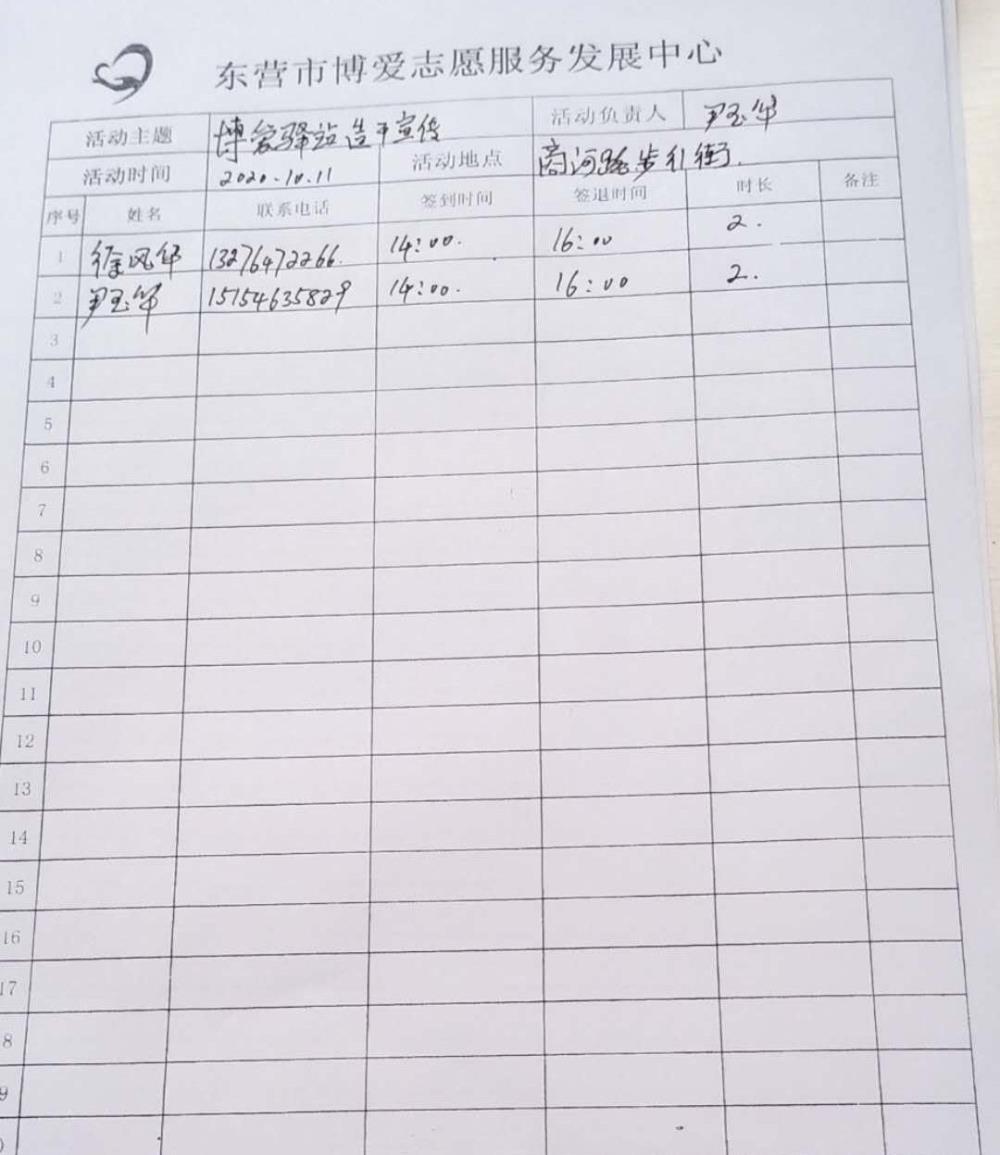 东营市博爱志愿服务发展中心
活动主题 博爱驿站造干宣传 活动负责人 尹玉华
活动时间 2020.10.11 活动地点 商河路步行街.
序号 姓名 联系电话 签到时间 签退时间 时长 备注
1 徐风华 13276472266. 14:00. 16:00 2.
2 尹玉华 15154635829 14:00. 16:00 2.
3
4
5
6
7
8
9
10
11
12
13
14
15
16
17
8
9